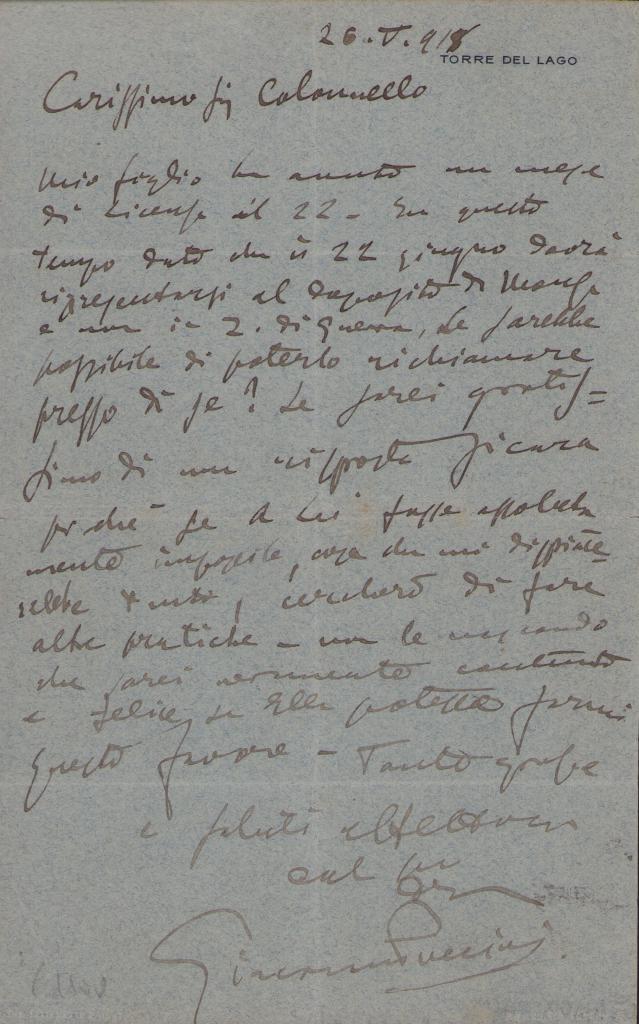 26.V.918
TORRE DEL LAGO
Carissimo Sig Colonnello
Mio figlio ha avuto un mese
di licenza il 22 - In questo
tempo dato che il 22 giugno dovrà
ripresentarsi al deposito di Monza
e non in Z. di Guerra, Le sarebbe
possibile di poterlo richiamare
presso di se? Le sarei gratis=
simo di una risposta sicura
perchè se a Lei fosse assoluta
mente impossibile, cosa che mi dispiace=
rebbe tanto, cercherò di fare
altre pratiche - non le nascondo
che sarei veramente contento
e felice se Ella potesse farmi
questo favore - Tante grazie
e saluti affettuosi
dal suo
Giacomo Puccini